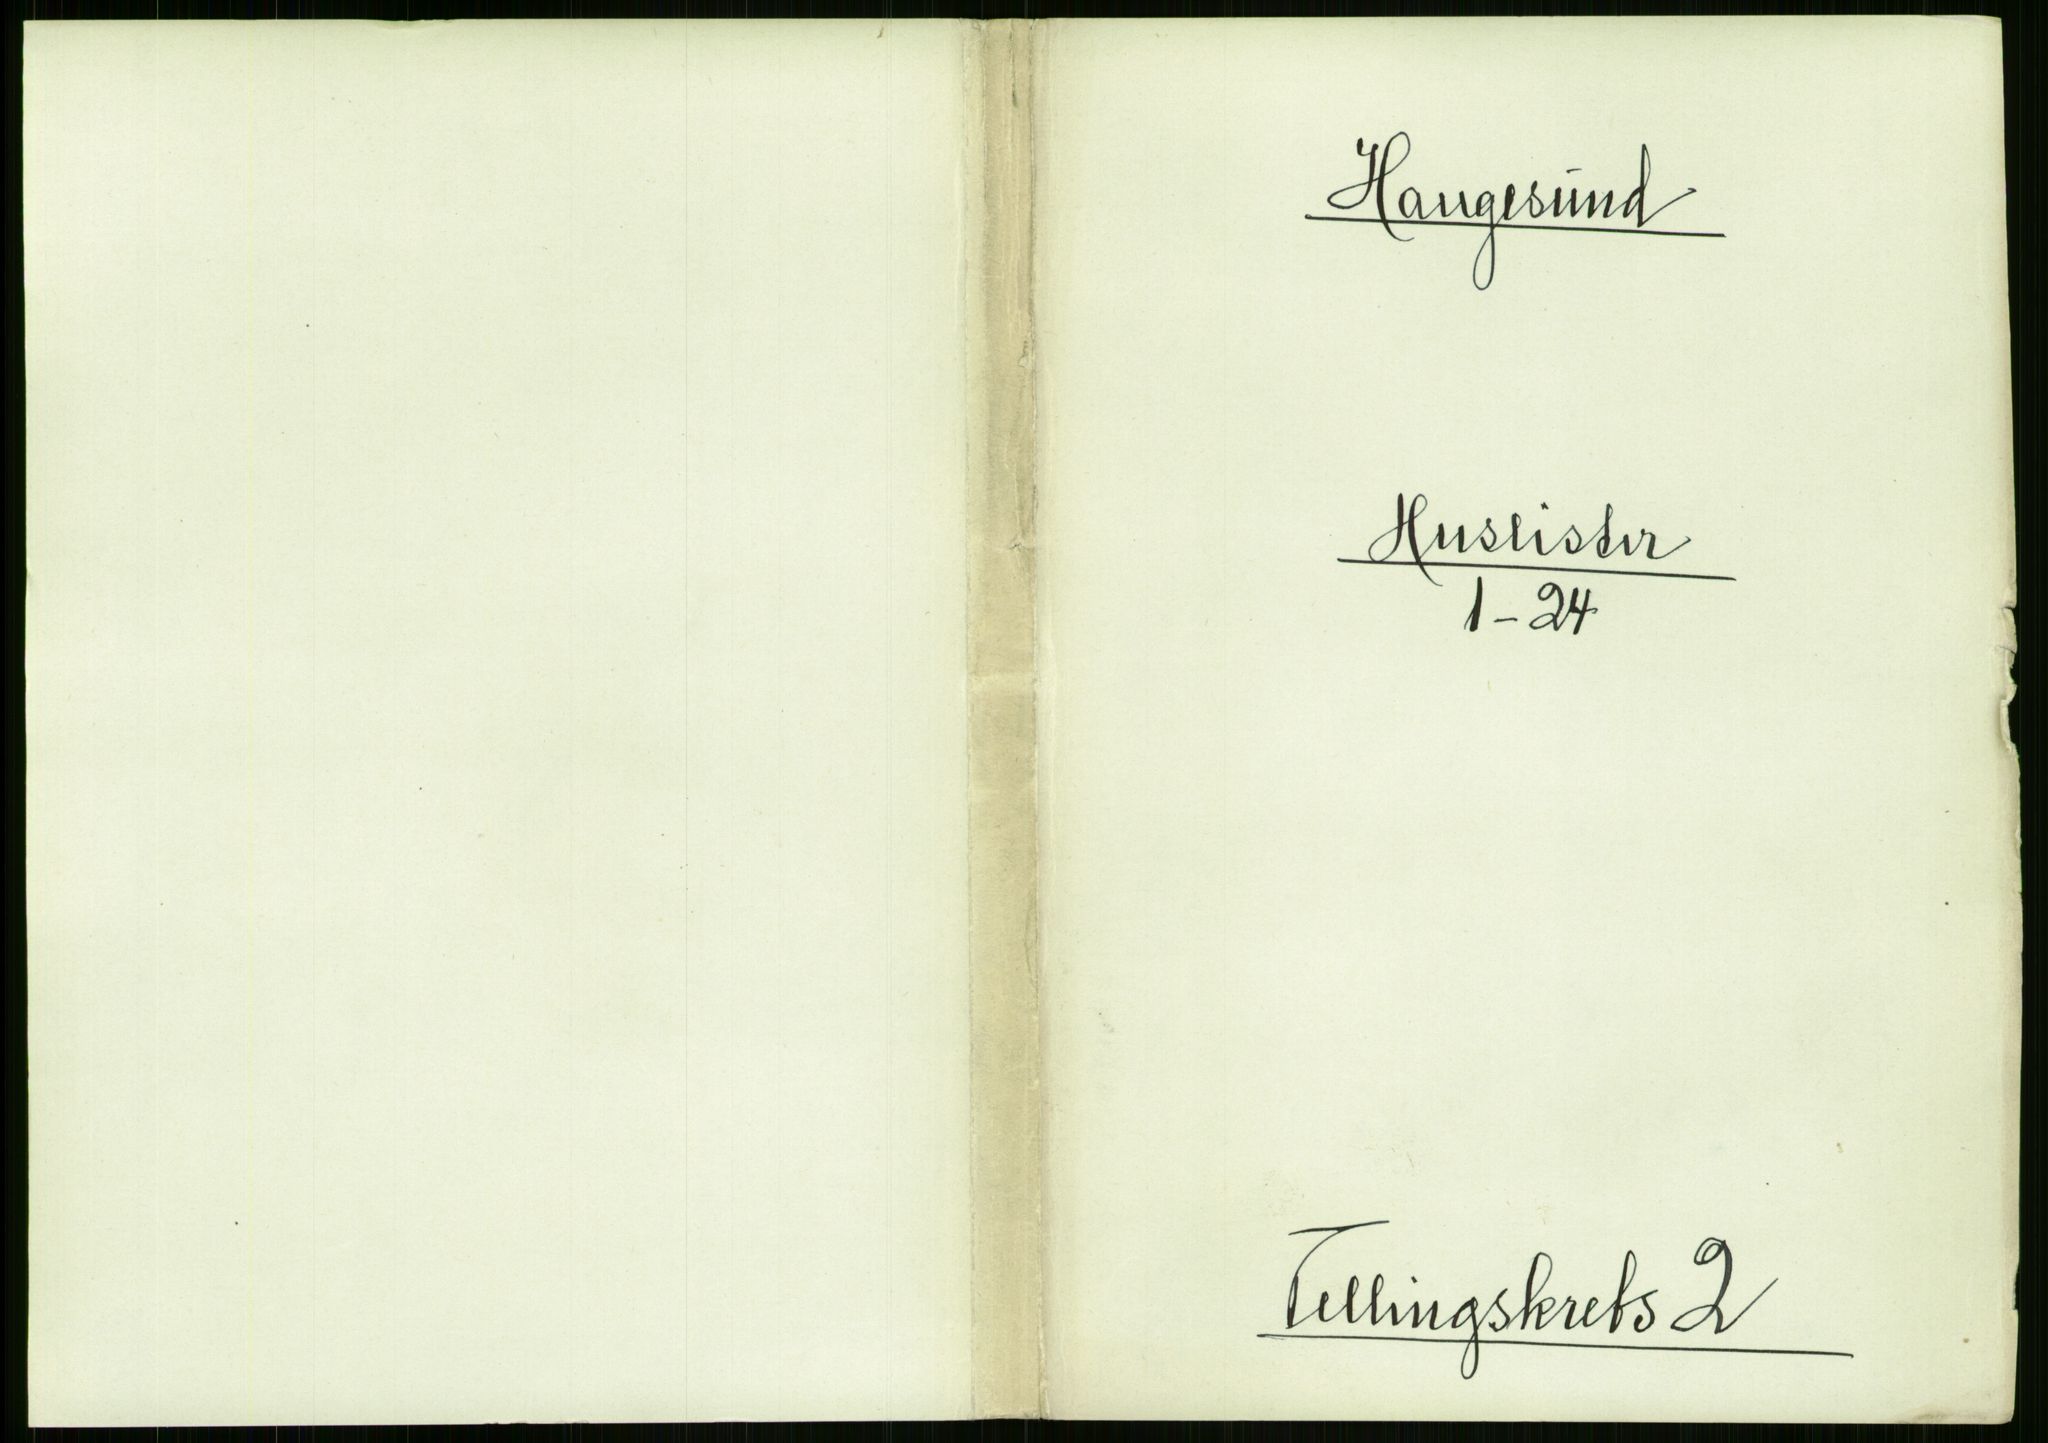 Haugesund
Huslister
1-24
Tellingskrets 2